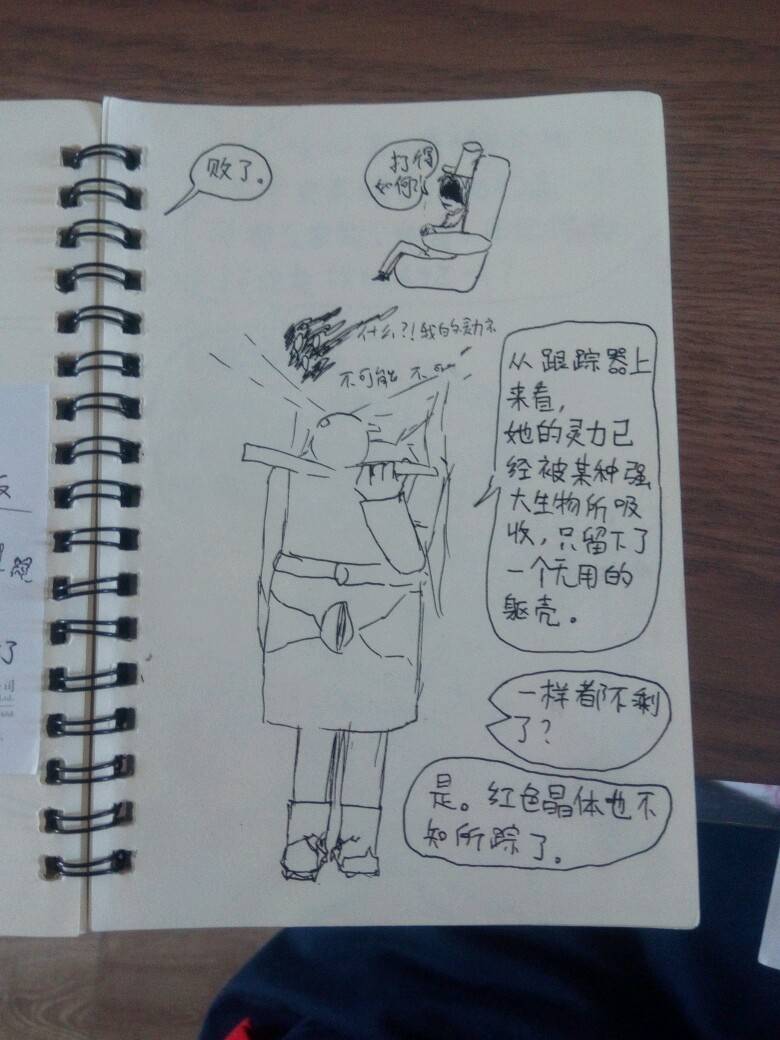 败了。
打得
如何？
什么？！我的灵力
不可能 不可
从跟踪器上
来看，
她的灵力已
经被某种强
大生物所吸
收，只留下了
一个无用的
躯壳。
一样都不剩
了？
是。红色晶体也不
知所踪了。
了